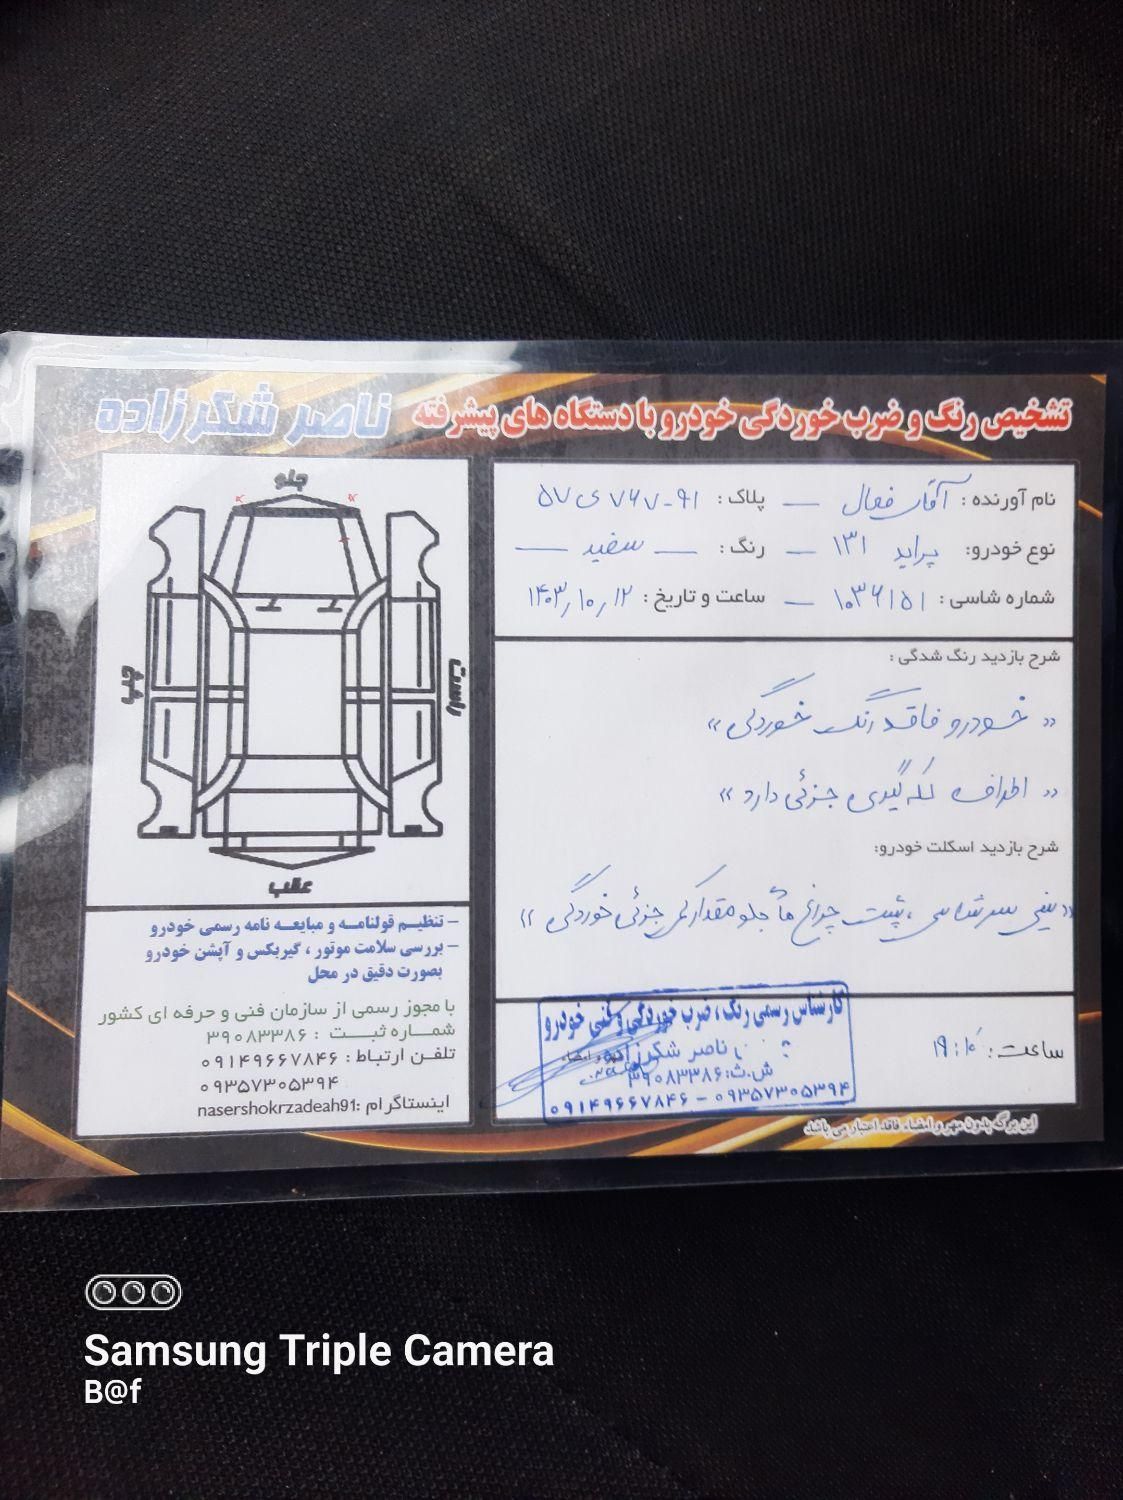 تشخیص رنگ و ضرب خوردگی خودرو با دستگاه های پیشرفته ناصر شکرزاده
نام آورنده : آقای فعال — پلاک : ۵۷ ی ۷۶۷-۹۱
نوع خودرو: پراید ۱۳۱ — رنگ : — سفید —
شماره شاسی : ۱۰۳۶۱۵۱ — ساعت و تاریخ : ۱۴۰۳/۱۰/۱۲
شرح بازدید رنگ شدگی :
«خودرو فاقد رنگ خوردگی»
«اطراف لکه گیری جزئی دارد»
شرح بازدید اسکلت خودرو:
«سینی سر شاسی ، پشت چراغ ها جلو مقدار کمی جزئی خوردگی»
ساعت: ۱۹:۱۰
کارشناس رسمی رنگ ، ضرب خوردگی و فنی خودرو
ناصر شکرزاده
مهر و امضاء
ش.ث:۳۹۰۸۳۳۸۶
۰۹۱۴۹۶۶۷۸۴۶ - ۰۹۳۵۷۳۰۵۳۹۴
این برگ بدون مهر و امضاء فاقد اعتبار می باشد
جلو
چپ
راست
عقب
– تنظیم قولنامه و مبایعه نامه رسمی خودرو
– بررسی سلامت موتور ، گیربکس و آپشن خودرو
بصورت دقیق در محل
با مجوز رسمی از سازمان فنی و حرفه ای کشور
شماره ثبت : ۳۹۰۸۳۳۸۶
تلفن ارتباط : ۰۹۱۴۹۶۶۷۸۴۶
۰۹۳۵۷۳۰۵۳۹۴
اینستاگرام :nasershokrzadeah91
Samsung Triple Camera
B@f